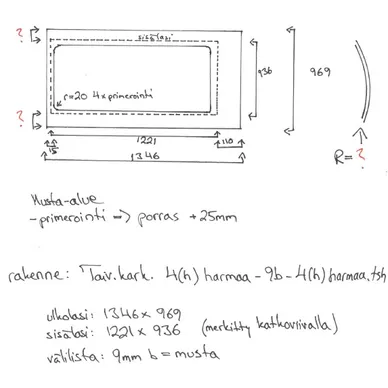 ?
sisälasi
r=20 4xprimerointi
936
969
?
1221
110
15
1346
R=?
Musta-alue
-primerointi => porras +25mm
rakenne: Taiv.kark. 4(h) harmaa-9b-4(h) harmaa.tsh
ulkolasi: 1346 x 969
sisälasi: 1221 x 936 (merkitty katkoviivalla)
välilista: 9mm b = musta